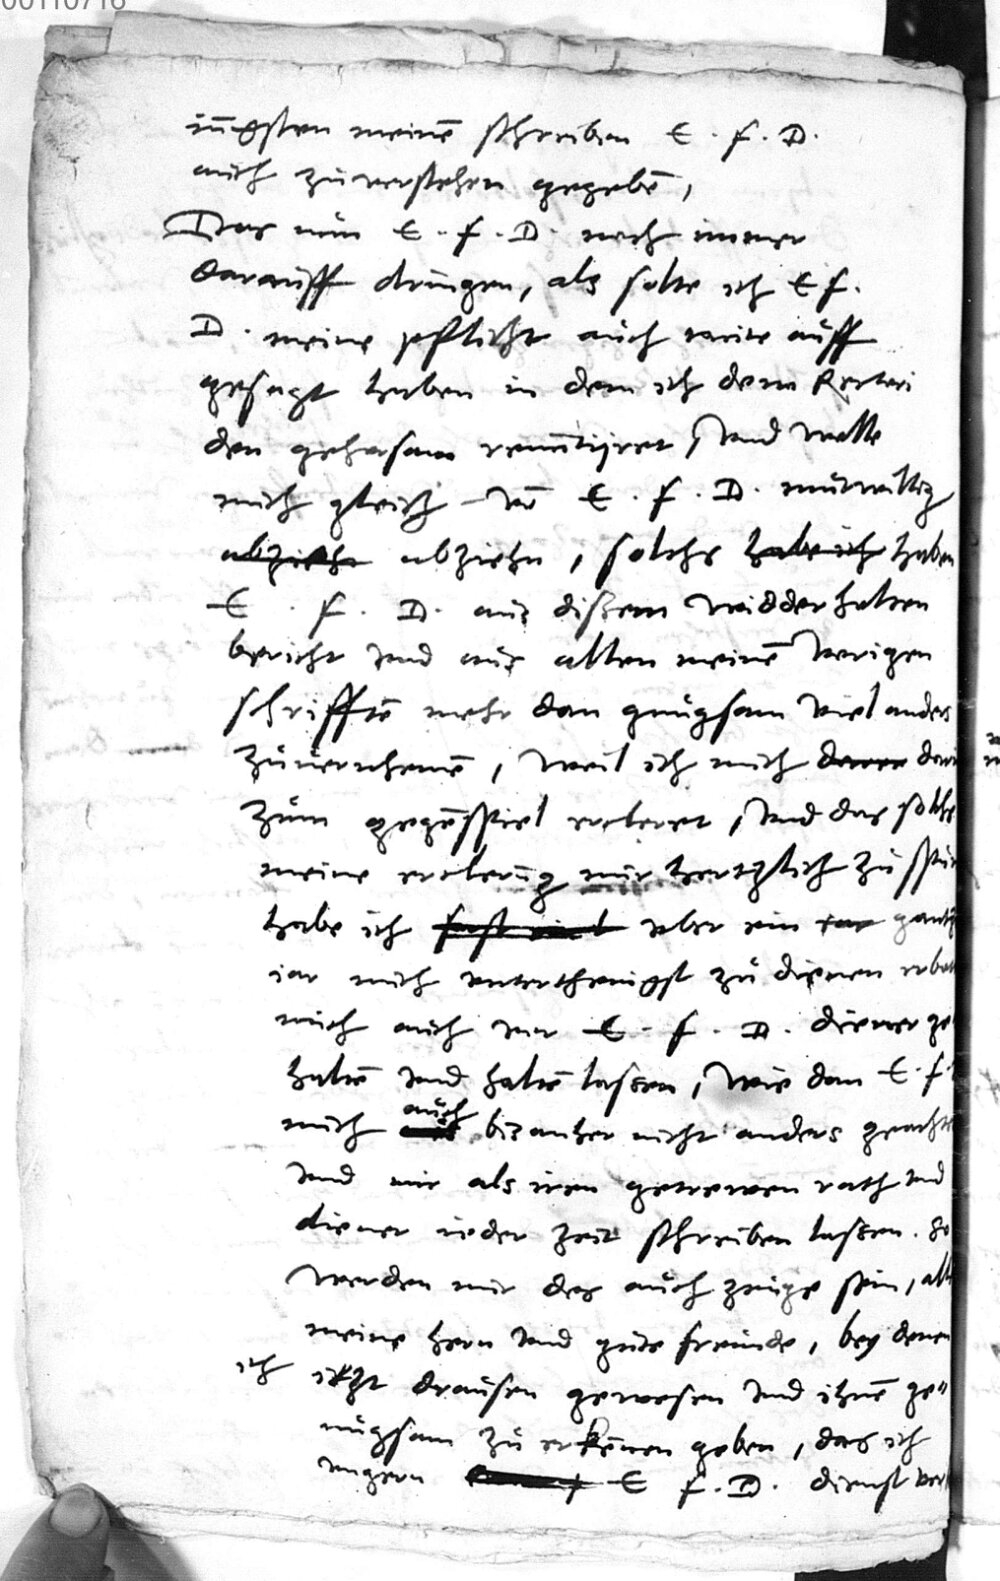 00110716
iungsten meinē schreiben E. f. D.
auch zuuerstehen gegebē,
Das nun E. f. D. noch immer
darauff dringen, als solte ich E f.
D. meine pflicht auch weite auff
gesagt haben in dem ich dem
den gehorsam renuntijret, vnd wolle
mich gleich von E. f. D. mutwillig
abziehe abziehn, solchs habe ich haben
E. f. D. aus dißem widderholten
bericht vnd aus allen meinē vorigen
schrifftē mehr dan gnugsam viel anders
zuuernhemē, weil ich mich
zum gegēspiel ercleret, vnd das solche
meine erclerūg nur hertzlich zu
habe ich fast viel vber ein iar gantz
iar mich vnterthenigst zu dienen
mich auch vor E. f. D. diener ge
haltē vnd haltē lassen, wie dan E. f.
mich auch bisanher nicht anders geacht
vnd mir als iren getrewen rath vnd
diener ieder zeit schreiben lassen. So
werden mir des auch zeuge sein, alle
meine hern vnd gute freunde, bey denen
ich itzt draussen gewesen vnd ihnē ge"
nugsam zu erkēnen geben, das ich
vngern E f. D. dienst ver